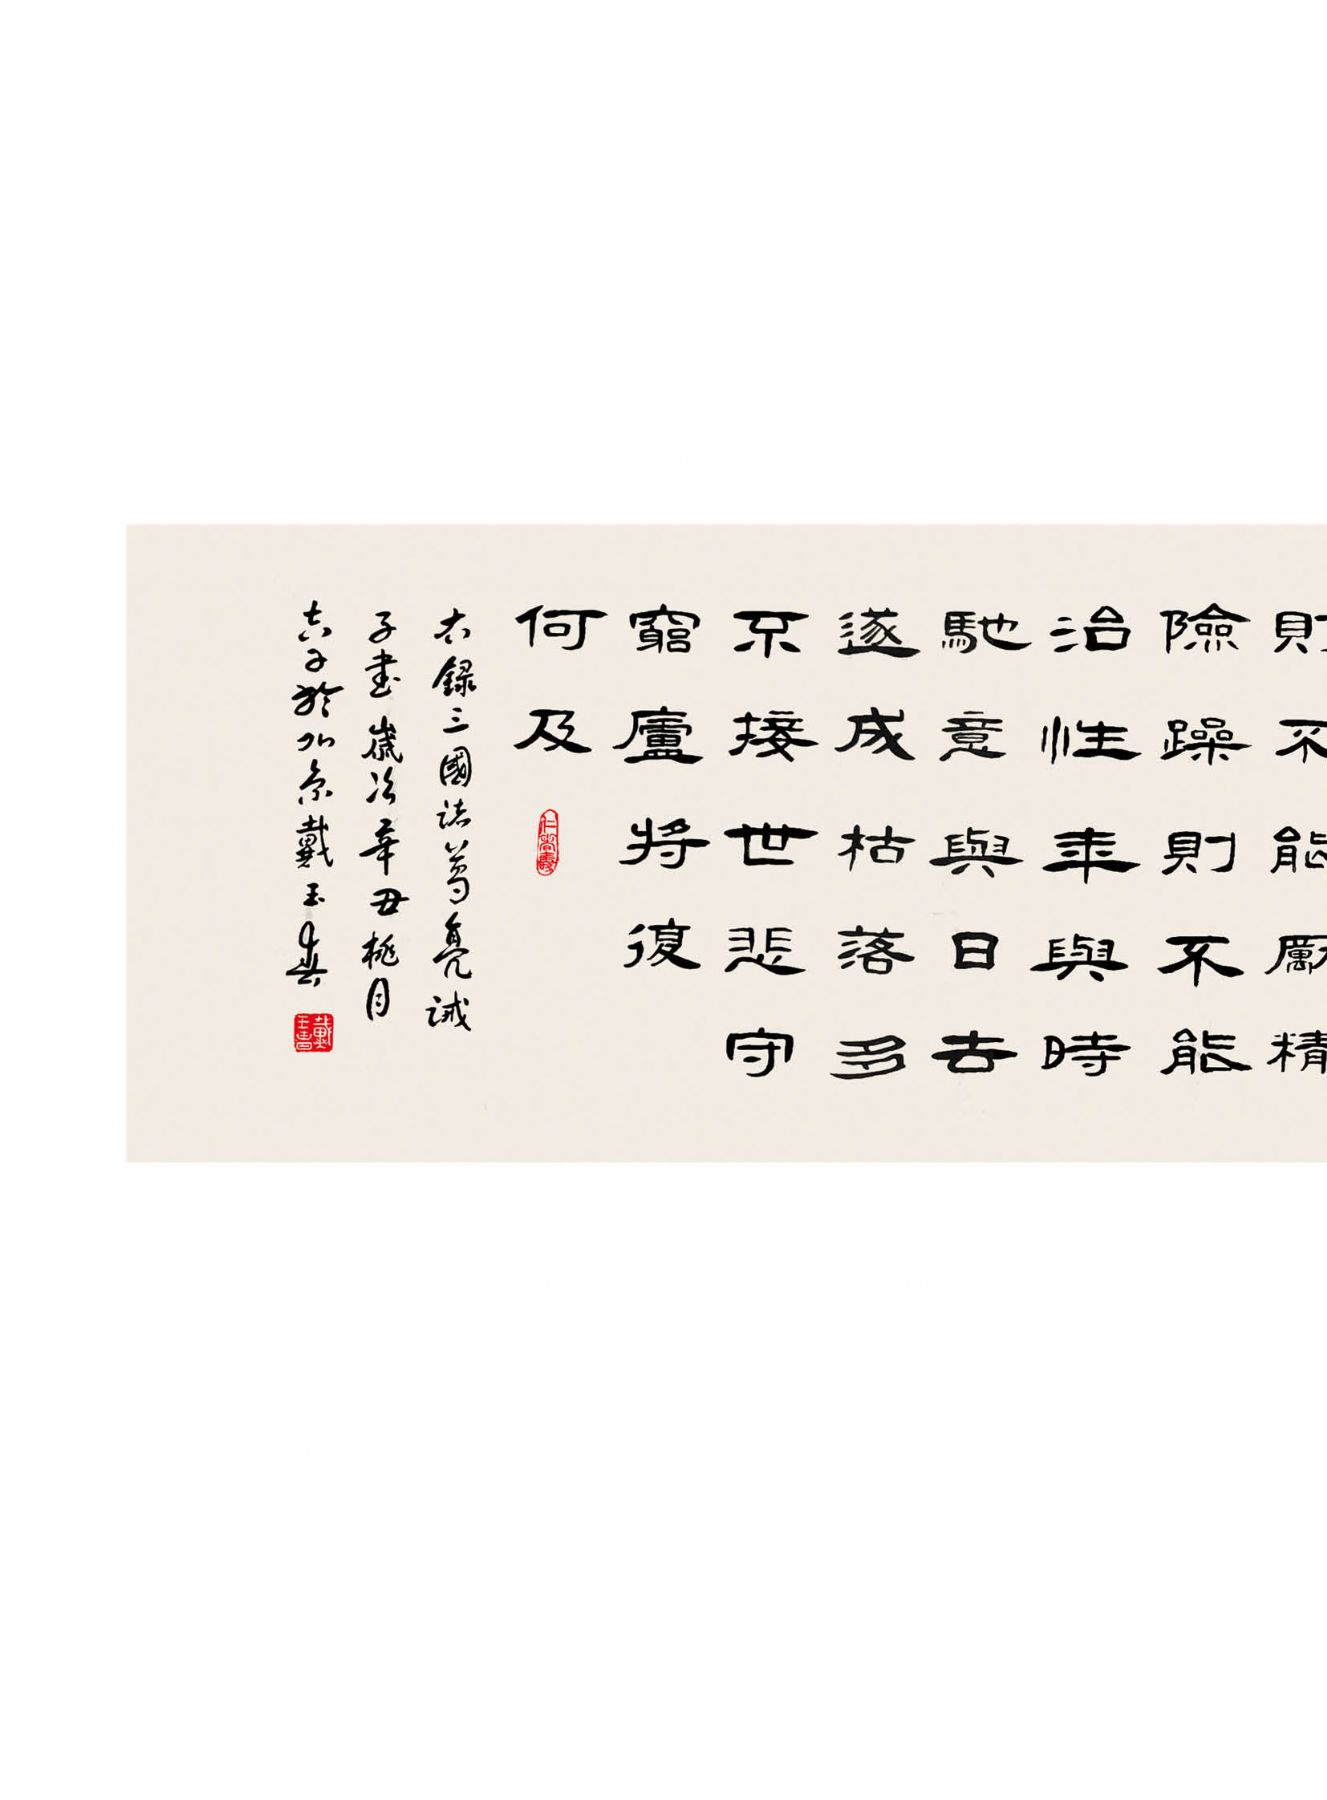 則不能厲精
險躁則不能
治性年與時
馳意與日去
遂成枯落多
不接世悲守
窮廬將復
何及
仁者壽
右錄三國諸葛亮誡
子書歲次辛丑桃月
吉子於北京戴玉